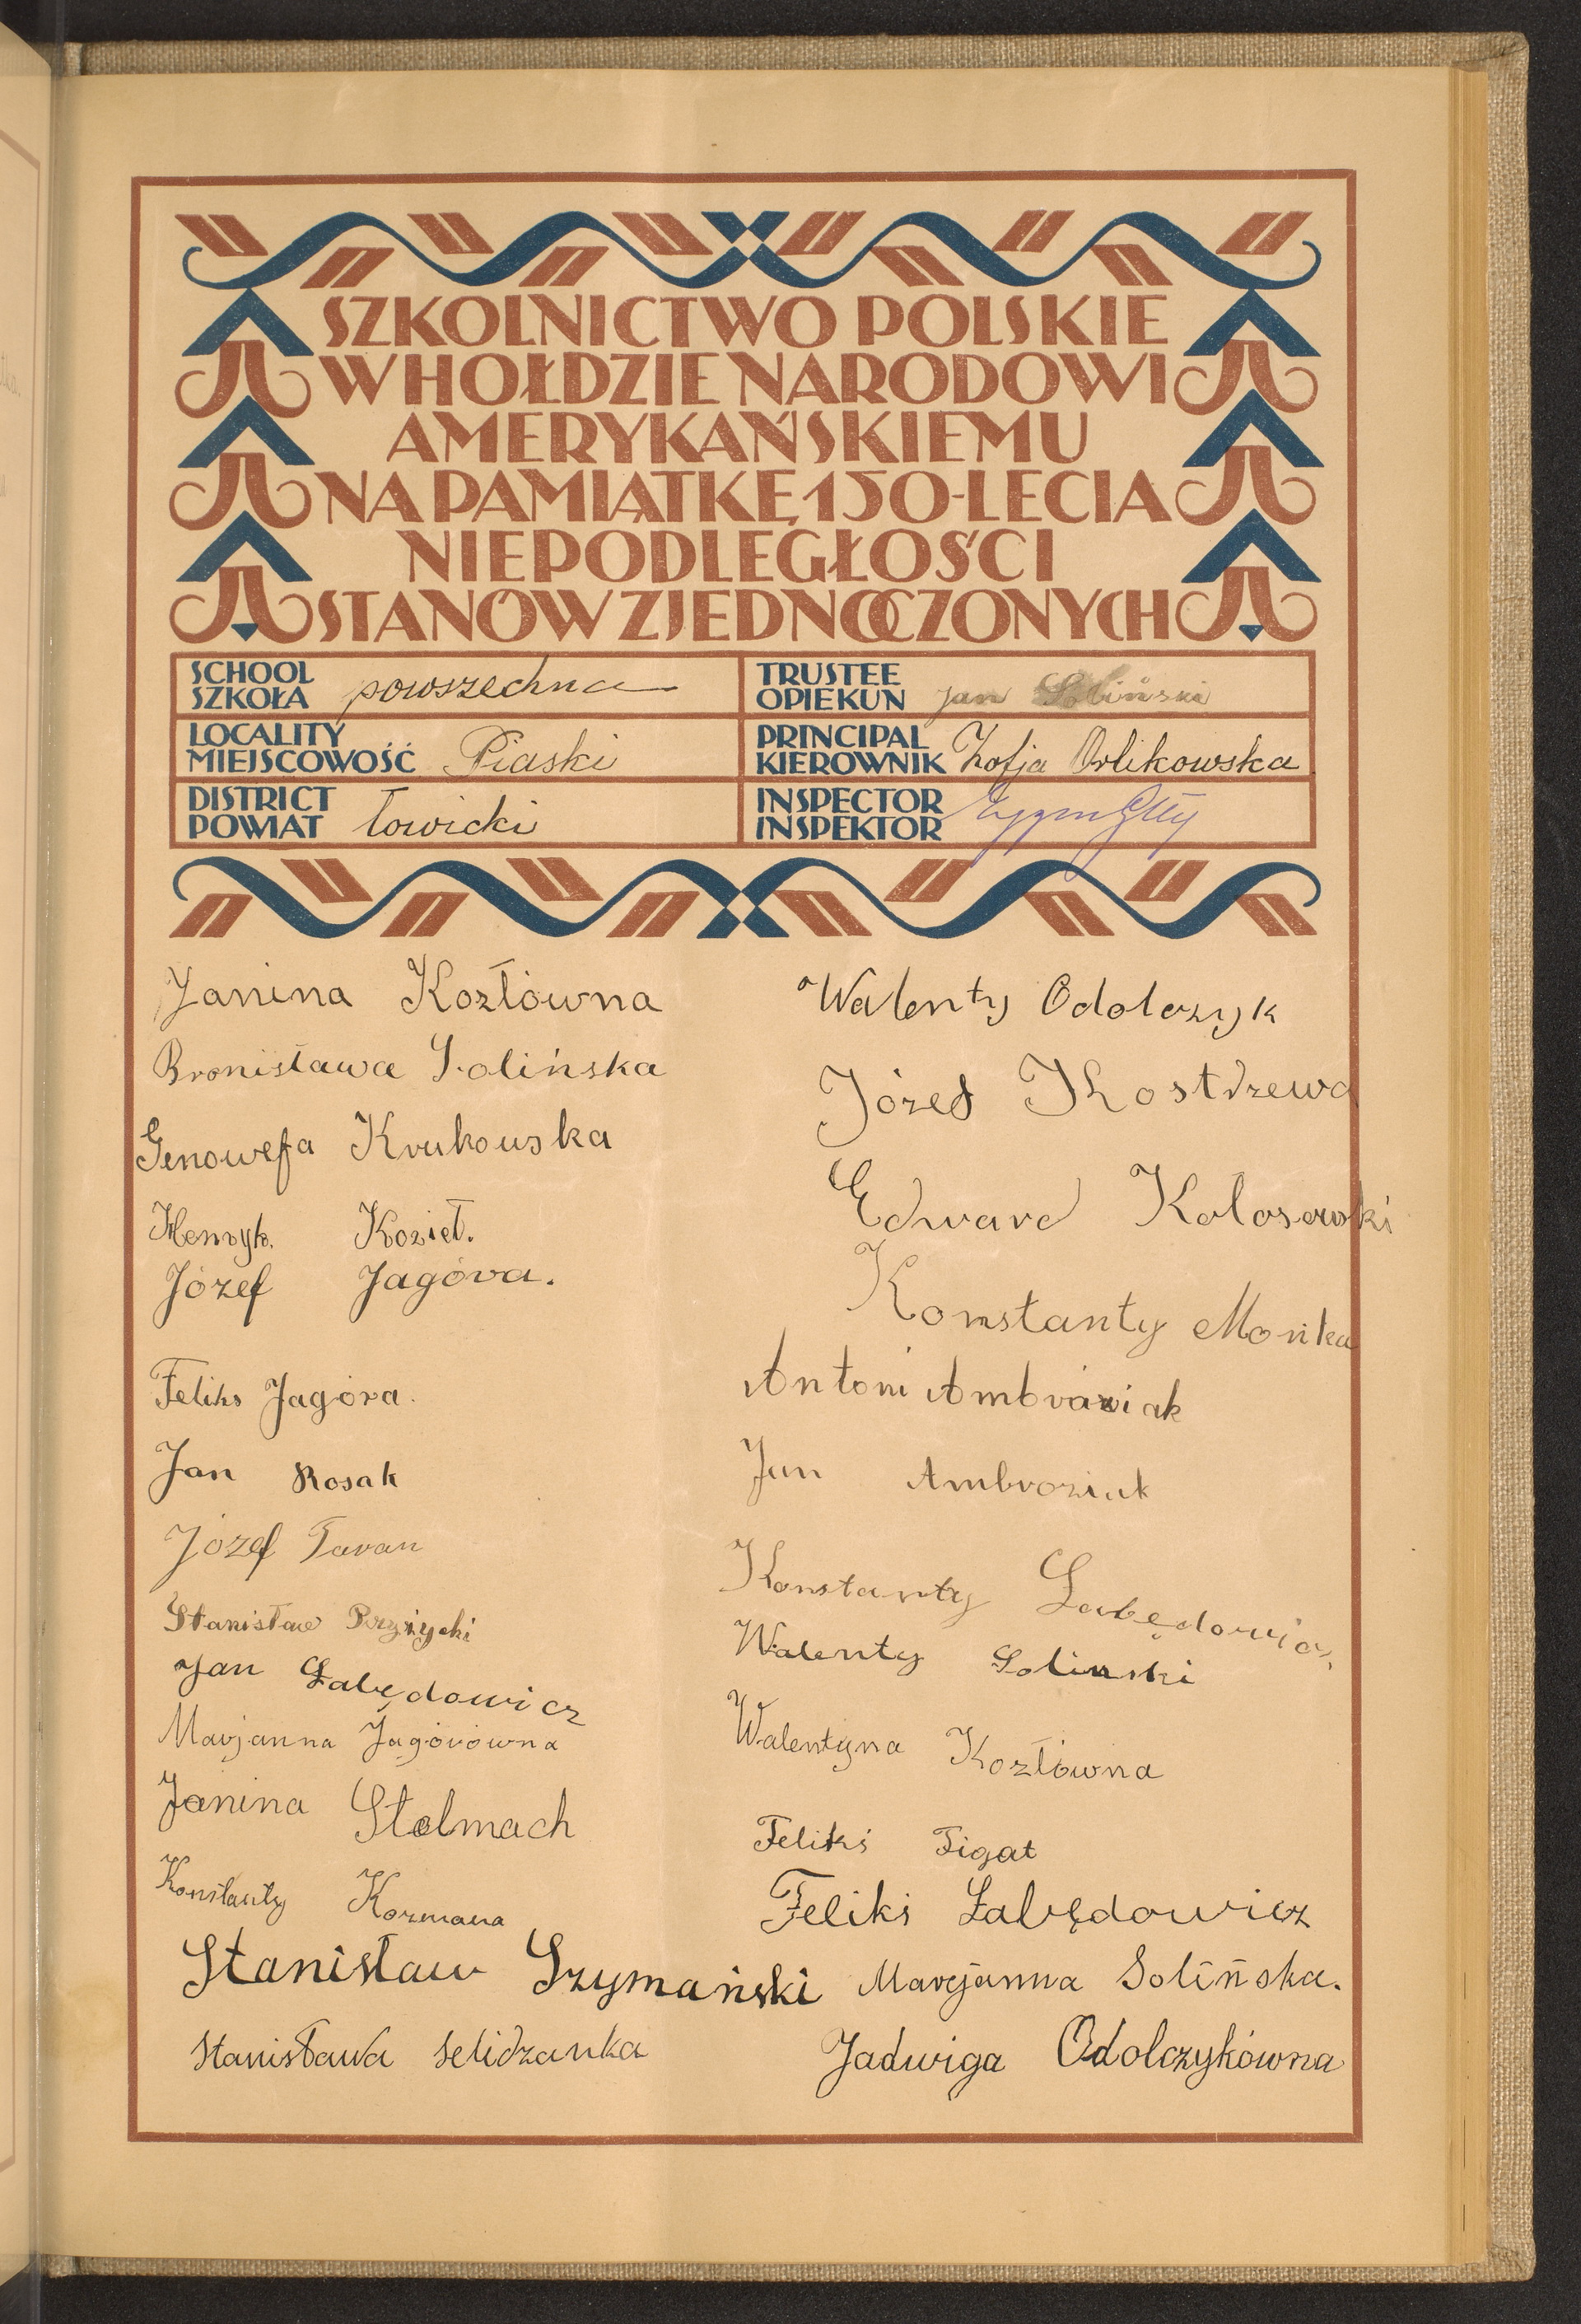 SZKOLNICTWO POLSKIE
W HOŁDZIE NARODOWI
AMERYKAŃSKIEMU
NA PAMIĄTKĘ 150-LECIA
NIEPODLEGŁOŚCI
STANÓW ZJEDNOCZONYCH
SCHOOL
SZKOŁA powszechna
TRUSTEE
OPIEKUN Jan Soliński
LOCALITY
MIEJSCOWOŚĆ Piaski
PRINCIPAL
KIEROWNIK Zofja Orlikowska
DISTRICT
POWIAT Łowicki
INSPECTOR
INSPEKTOR
Janina Kozłówna
Bronisława Solińska
Genowefa Krukowska
Henryk. Kozieł.
Józef Jagóra.
Feliks Jagóra.
Jan Rosak
Józef Taran
Stanisław
Jan Łabędowicz
Marjanna Jagórówna
Janina Stelmach
Konstanty
Stanisław Szymański
Stanisława Selidzanka
Walenty Odolczyk
Józef Kostrzewa
Edward Kołosowski
Konstanty Mońka
Antoni Ambroziak
Jan Ambroziak
Konstanty Łabędowicz
Walenty Solinski
Walentyna Kozłówna
Feliks Figat
Feliks Łabędowicz
Marjanna Solińska.
Jadwiga Odolczykówna